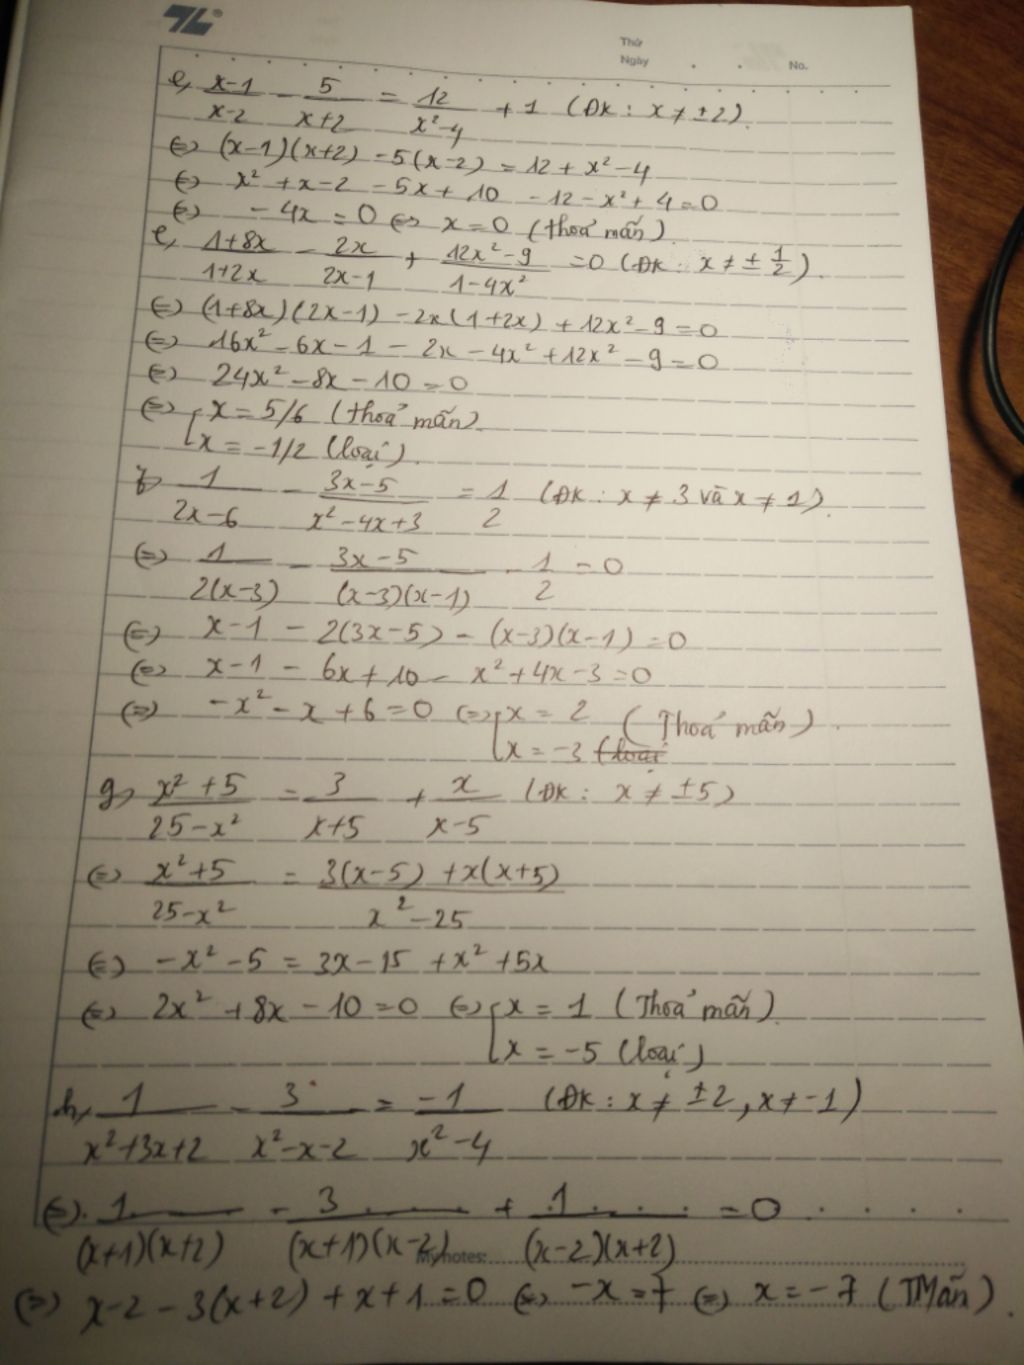 Thứ
Ngày . . No.
e, x-1/x-2 - 5/x+2 = 12/x²-4 + 1 (ĐK: x ≠ ±2).
(=) (x-1)(x+2) - 5(x-2) = 12 + x² - 4
(=) x² + x - 2 - 5x + 10 - 12 - x² + 4 = 0
(=) - 4x = 0 (=) x = 0 (thoả mãn).
e, 1+8x/1+2x - 2x/2x-1 + 12x²-9/1-4x² = 0 (ĐK: x ≠ ± 1/2).
(=) (1+8x)(2x-1) - 2x(1+2x) + 12x² - 9 = 0
(=) 16x² - 6x - 1 - 2x - 4x² + 12x² - 9 = 0
(=) 24x² - 8x - 10 = 0
(=) [x = 5/6 (thoả mãn).
[x = -1/2 (loại).
1/2x-6 - 3x-5/x²-4x+3 = 1/2 (ĐK: x ≠ 3 và x ≠ 1).
(=) 1/2(x-3) - 3x-5/(x-3)(x-1) - 1/2 = 0
(=) x-1 - 2(3x-5) - (x-3)(x-1) = 0
(=) x-1 - 6x + 10 - x² + 4x - 3 = 0
(=) -x² - x + 6 = 0 (=) [x = 2 (Thoả mãn).
[x = -3 (loại
g, x²+5/25-x² = 3/x+5 + x/x-5 (ĐK: x ≠ ±5)
(=) x²+5/25-x² = 3(x-5) + x(x+5)/x²-25
(=) -x² - 5 = 3x - 15 + x² + 5x
(=) 2x² + 8x - 10 = 0 (=) [x = 1 (Thoả mãn).
[x = -5 (loại)
h, 1/x²+3x+2 - 3/x²-x-2 = -1/x²-4 (ĐK: x ≠ ±2, x ≠ -1)
(=). 1/(x+1)(x+2) - 3/(x+1)(x-2) + 1/(x-2)(x+2) = 0
My notes:
(=) x-2 - 3(x+2) + x+1 = 0 (=) -x = 7 (=) x = -7 (TMãn).